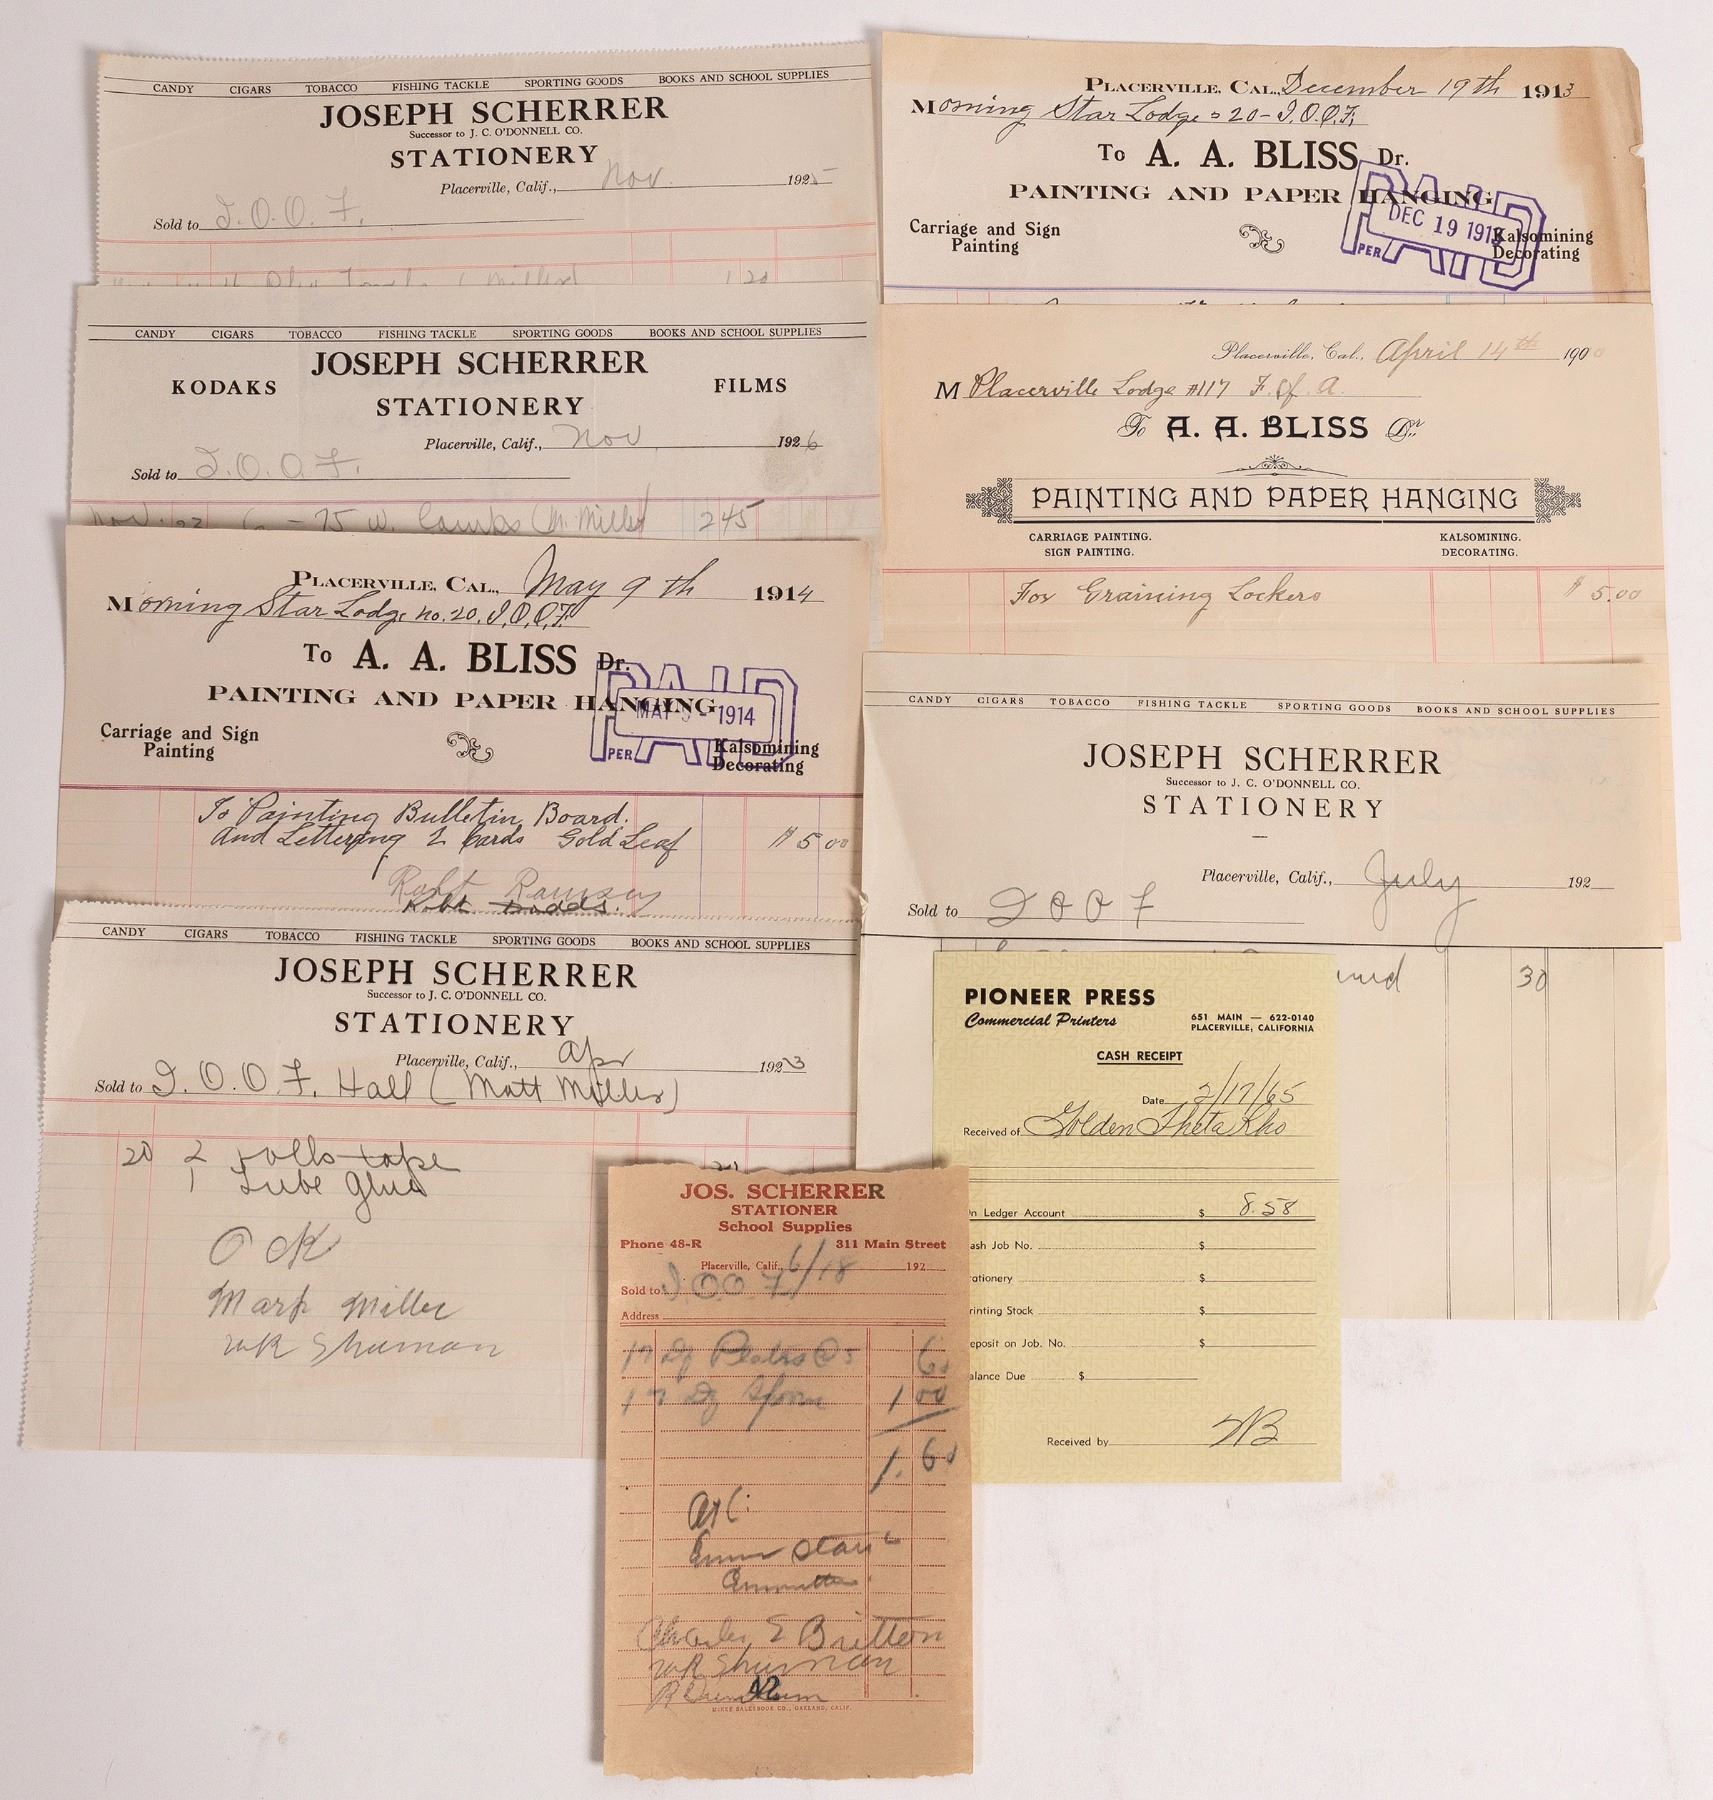 CANDY CIGARS TOBACCO FISHING TACKLE SPORTING GOODS BOOKS AND SCHOOL SUPPLIES
JOSEPH SCHERRER
Successor to J. C. O'DONNELL CO.
STATIONERY
Placerville, Calif., Nov. 1925
Sold to I.O.O.F.
1 20
CANDY CIGARS TOBACCO FISHING TACKLE SPORTING GOODS BOOKS AND SCHOOL SUPPLIES
JOSEPH SCHERRER
KODAKS FILMS
STATIONERY
Placerville, Calif., Nov 1926
Sold to I.O.O.F.
Nov. 22 6 - 75 w. Lamps (M. Miller) 245
PLACERVILLE, CAL., May 9th 1914
Morning Star Lodge no. 20, I.O.O.F.
To A. A. BLISS Dr.
PAINTING AND PAPER HANGING
PAID
MAY 9 - 1914
PER
Carriage and Sign Painting
Kalsomining
Decorating
To Painting Bulletin Board.
And Lettering 2 Cards Gold Leaf $ 5 00
Robt Ramsey
Robt Dodds.
CANDY CIGARS TOBACCO FISHING TACKLE SPORTING GOODS BOOKS AND SCHOOL SUPPLIES
JOSEPH SCHERRER
Successor to J. C. O'DONNELL CO.
STATIONERY
Placerville, Calif., Apr 1923
Sold to I.O.O.F. Hall (Matt Miller)
20 2 rolls tape
1 Tube Glue
OK
Mark Miller
WR Shuman
PLACERVILLE, CAL., December 19th 1913
Morning Star Lodge 20 - I.O.O.F.
To A. A. BLISS Dr.
PAINTING AND PAPER HANGING
PAID
DEC 19 1913
PER
Carriage and Sign
Painting
Kalsomining
Decorating
Placerville, Cal., April 14th 1900
M Placerville Lodge #117 F. of A.
To A. A. BLISS Dr.
PAINTING AND PAPER HANGING
CARRIAGE PAINTING.
SIGN PAINTING.
KALSOMINING.
DECORATING.
For Graining Lockers $ 5.00
CANDY CIGARS TOBACCO FISHING TACKLE SPORTING GOODS BOOKS AND SCHOOL SUPPLIES
JOSEPH SCHERRER
Successor to J. C. O'DONNELL CO.
STATIONERY
Placerville, Calif., July 192
Sold to I O O F
30
PIONEER PRESS
Commercial Printers
651 MAIN — 622-0140
PLACERVILLE, CALIFORNIA
CASH RECEIPT
Date 2/17/65
Received of Golden Theta Rho
n Ledger Account $ 8.58
ash Job No. $
ationery $
rinting Stock $
eposit on Job. No. $
alance Due $
Received by
JOS. SCHERRER
STATIONER
School Supplies
Phone 48-R 311 Main Street
Placerville, Calif. 6/18 192
Sold to I O O F
Address
Plates @ 5 60
1 00
1.60
Committee
Charles E Britton
WR Shuman
42
McKEE SALESBOOK CO., OAKLAND, CALIF.